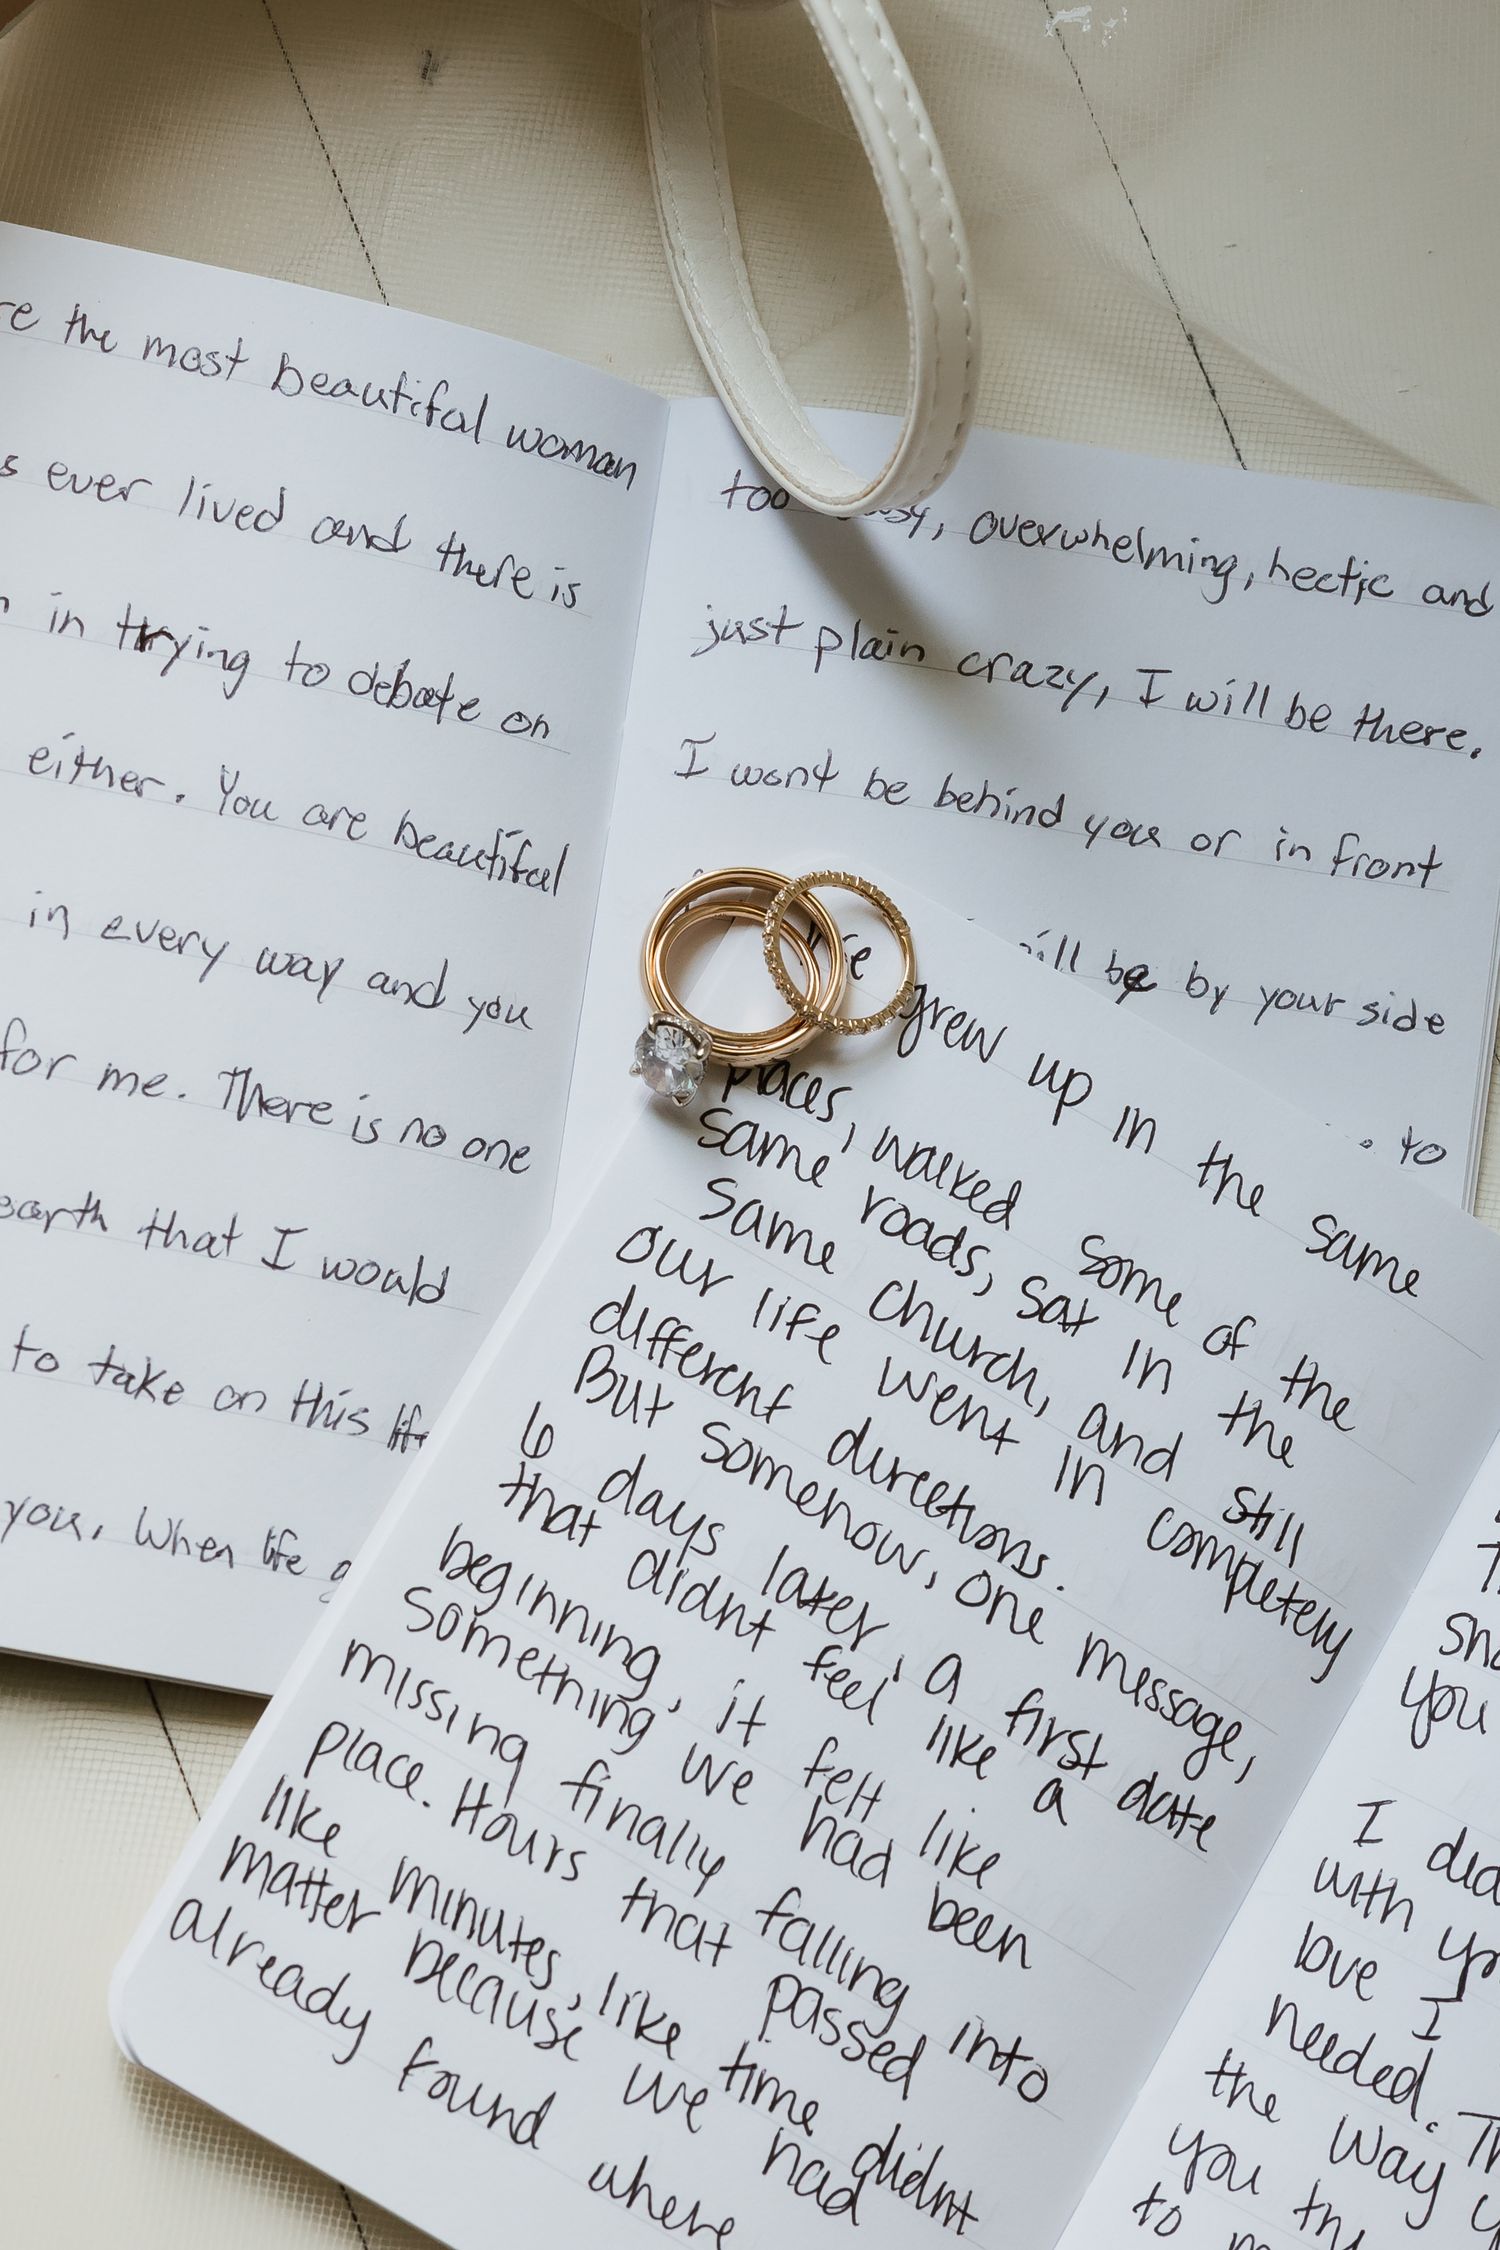 the most beautiful woman
ever lived and there is
in trying to debate on
either. You are beautiful
in every way and you
for me. There is no one
earth that I would
to take on this life
you. When life
too busy, overwhelming, hectic and
just plain crazy, I will be there.
I wont be behind you or in front
will be by your side
to
We grew up in the same
places, walked some of the
same roads, sat in the
same church, and still
our life went in completely
different directions.
But somehow, one message,
6 days later, a first date
that didnt feel like a
beginning, it felt like
something we had been
missing finally falling into
place. Hours that passed
like minutes, like time didnt
matter because we had
already found where
you
I did
with
love I
needed.
the way
you
to